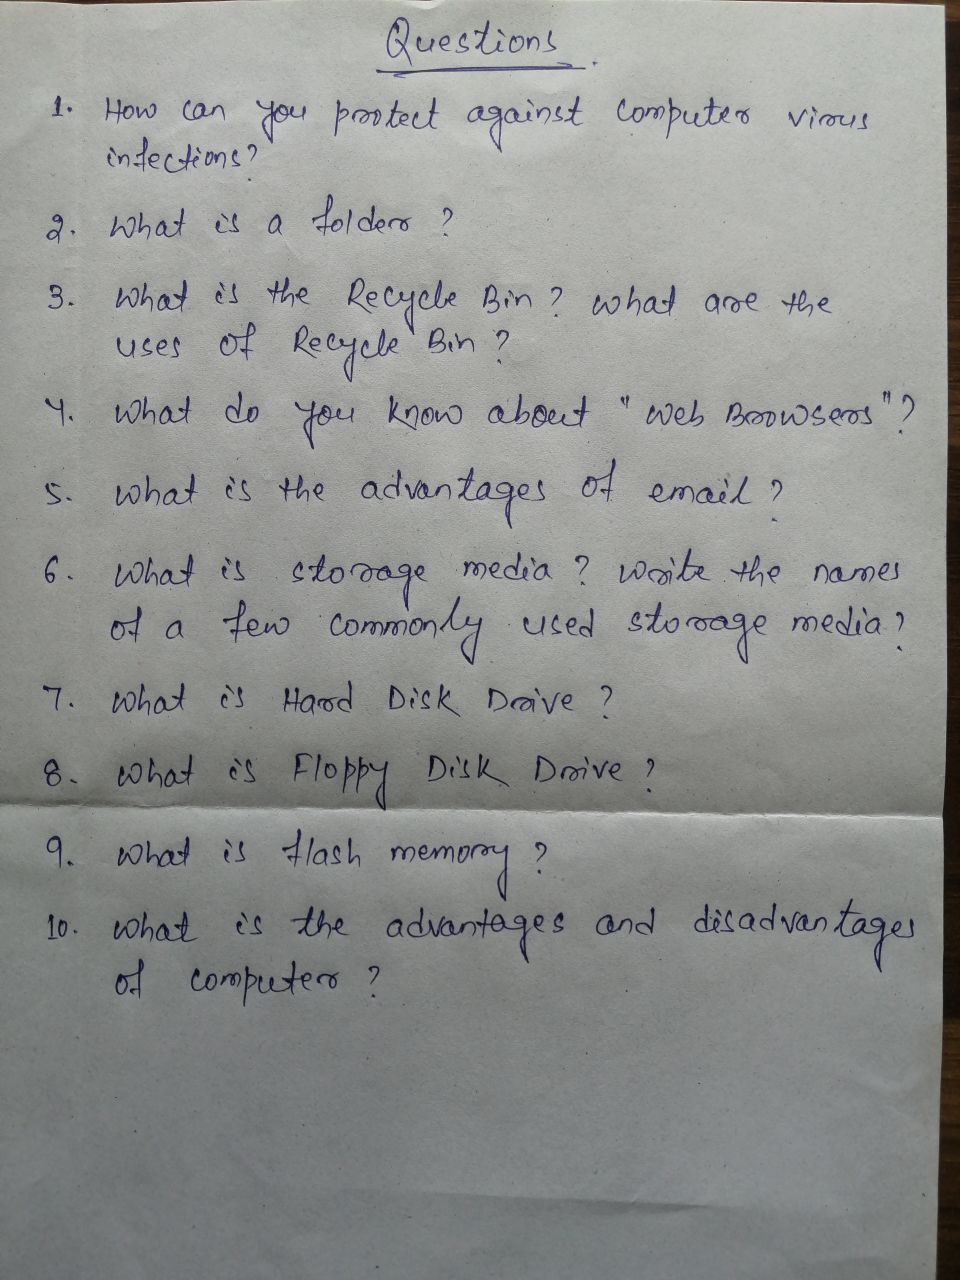 Questions.
1. How can you protect against computer virus
infections?
2. What is a folder ?
3. What is the Recycle Bin ? What are the
uses of Recycle Bin ?
4. What do you know about "Web Browsers"?
5. What is the advantages of email ?
6. What is storage media ? Write the names
of a few commonly used storage media ?
7. What is Hard Disk Drive ?
8. What is Floppy Disk Drive ?
9. What is flash memory ?
10. What is the advantages and disadvantages
of computer ?